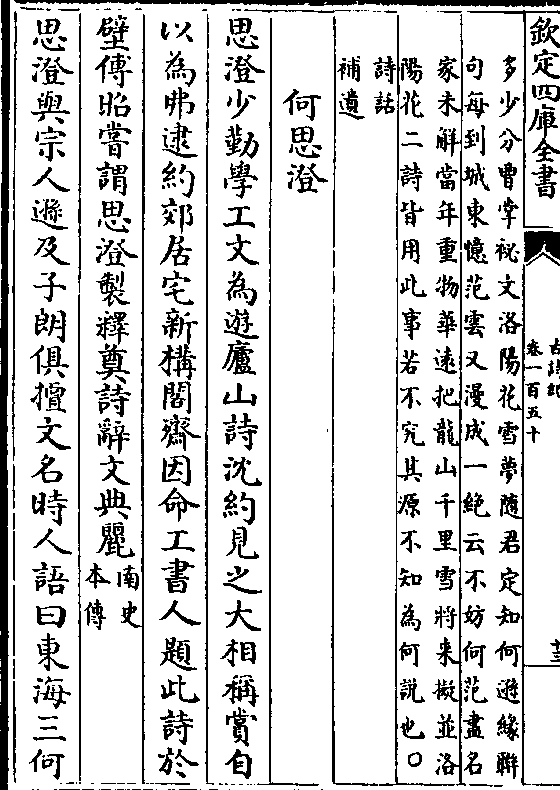 欽定四庫全書
古詩紀
卷一百五十
多少分曹掌祕文洛陽花雪夢隨君定知何遜緣聯
句每到城東憶范雲又漫成一絶云不妨何范盡名
家未解當年重物華遠把龍山千里雪將来擬並洛
陽花二詩皆用此事若不究其源不知為何說也〇
詩話
補遺
何思澄
思澄少勤學工文為遊廬山詩沈約見之大相稱賞自
以為弗逮約郊居宅新構閣齋因命工書人題此詩於
壁傅昭嘗謂思澄製釋奠詩辭文典麗南史
本傳
思澄與宗人遜及子朗俱擅文名時人語曰東海三何